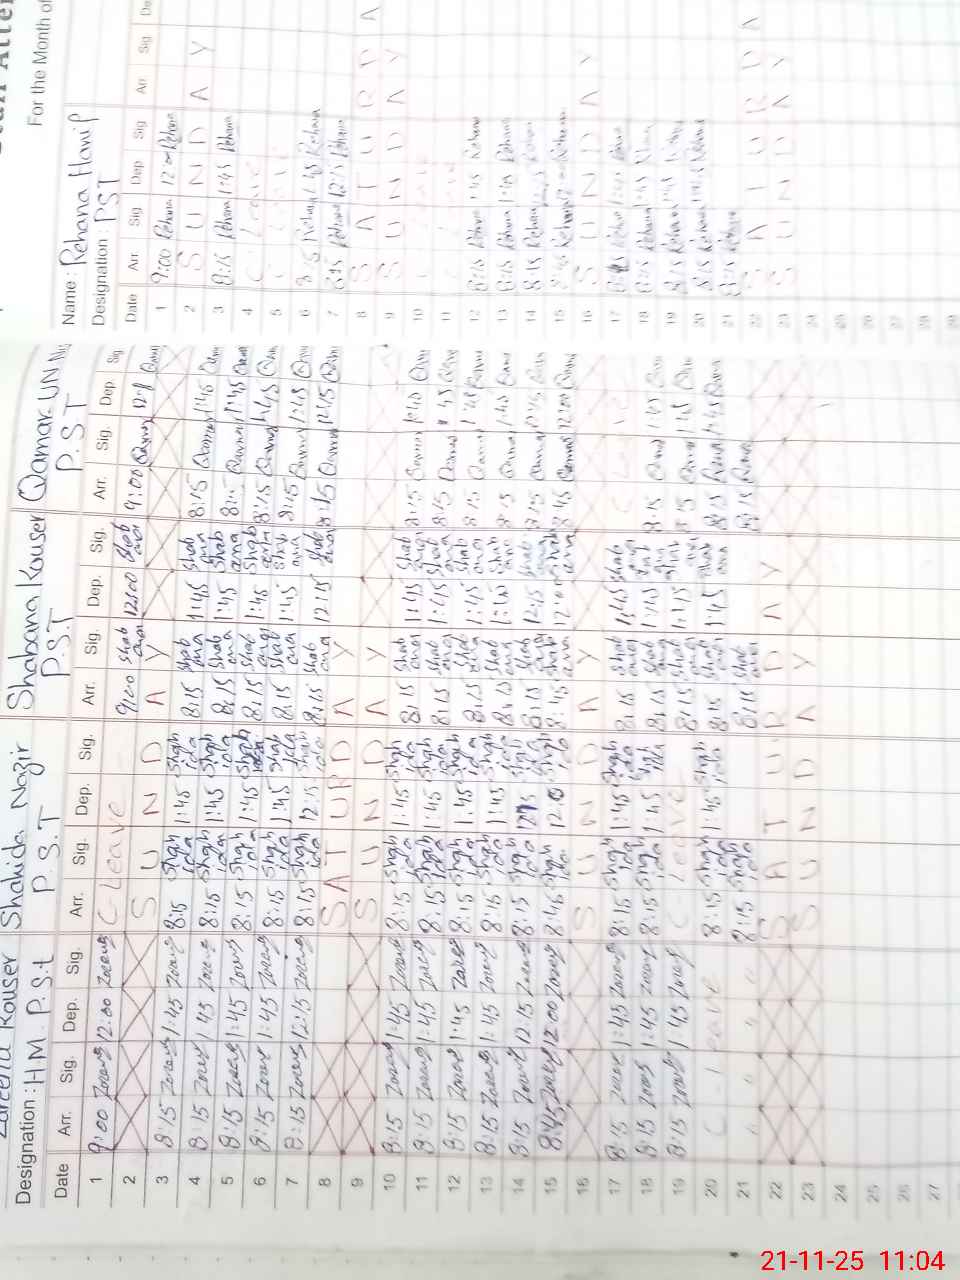 Zareena Kouser Shahida Nazir Shabana Kouser Qamar UN
Designation : H.M. P.S.t P.S.T P.S.T P.S.T
Date Arr. Sig. Dep. Sig. Arr. Sig. Dep. Sig. Arr. Sig. Dep. Sig. Arr. Sig. Dep. Sig
1 9:00 Zareena 12:00 Zareena C Leave 9:00 Shabana 12:00 Shabana 9:00 Qamar
2 S U N D A Y
3 8:15 Zareena 1:45 Zareena 8:15 Shahida 1:45 Shahida 8:15 Shabana 1:45 Shabana 8:15 Qamar 1:45
4 8:15 Zareena 1:45 Zareena 8:15 Shahida 1:45 Shahida 8:15 Shabana 1:45 Shabana 8:15 Qamar 1:45
5 8:15 Zareena 1:45 Zareena 8:15 Shahida 1:45 Shahida 8:15 Shabana 1:45 Shabana 8:15 Qamar 1:45
6 8:15 Zareena 1:45 Zareena 8:15 Shahida 1:45 Shahida 8:15 Shabana 1:45 Shabana 8:15 Qamar 1:45
7 8:15 Zareena 12:15 Zareena 8:15 Shahida 12:15 Shahida 8:15 Shabana 12:15 Shabana 8:15 Qamar 12:15
8 S A T U R D A Y
9 S U N D A Y
10 8:15 Zareena 1:45 Zareena 8:15 Shahida 1:45 Shahida 8:15 Shabana 1:45 Shabana 8:15 Qamar 1:45
11 8:15 Zareena 1:45 Zareena 8:15 Shahida 1:45 Shahida 8:15 Shabana 1:45 Shabana 8:15 Qamar 1:45
12 8:15 Zareena 1:45 Zareena 8:15 Shahida 1:45 Shahida 8:15 Shabana 1:45 Shabana 8:15 Qamar 1:45
13 8:15 Zareena 1:45 Zareena 8:15 Shahida 1:45 Shahida 8:15 Shabana Shabana Qamar 1:45
14 8:15 Zareena 12:15 Zareena 8:15 Shahida Shahida 8:15 Shabana 12:15 Shabana 8:15 Qamar 12:15
15 8:45 Zareena 12:00 Zareena 8:45 Shahida 12:0 Shahida 8:45 Shabana 12:0 Shabana 8:45 Qamar 12:00
16 S U N D A Y
17 8:15 Zareena 1:45 Zareena 8:15 Shahida 1:45 Shahida 8:15 Shabana 1:45 Shabana
18 8:15 Zareena 1:45 Zareena 8:15 Shahida 1:45 Shahida 8:15 Shabana 1:45 Shabana 8:15 Qamar 1:45
19 8:15 Zareena 1:45 Zareena C-Leave 8:15 Shabana Shabana Qamar 1:45
20 C Leave 8:15 Shahida 1:45 Shahida 8:15 Shabana 1:45 Shabana 8:15 1:45
21 " " " " 8:15 Shahida 8:15 Shabana 8:15
22 S A T U R D A Y
23 S U N D A Y
24
25
26
27
For the Month of
Name : Rehana Hanif
Designation : PST
Date Arr Sig Dep Sig Arr Sig De
1 9:00 Rehana 12:00 Rehana
2 S U N D A Y
3 8:15 Rehana 1:45 Rehana
4 C Leave
5
6 8:15 Rehana 1:45 Rehana
7 8:15 Rehana 12:15 Rehana
8 S A T U R D A
9 S U N D A Y
10
11
12 8:15 Rehana 1:45 Rehana
13 8:15 Rehana 1:45 Rehana
14 8:15 Rehana Rehana
15 8:45 Rehana Rehana
16 S U N D A Y
17 8:15 Rehana 1:45 Rehana
18 8:15 Rehana 1:45 Rehana
19 8:15 Rehana 1:45 Rehana
20 8:15 Rehana 1:45 Rehana
21 8:15 Rehana
22 S A T U R D A
23 S U N D A Y
24
25
26
27
28
21-11-25 11:04